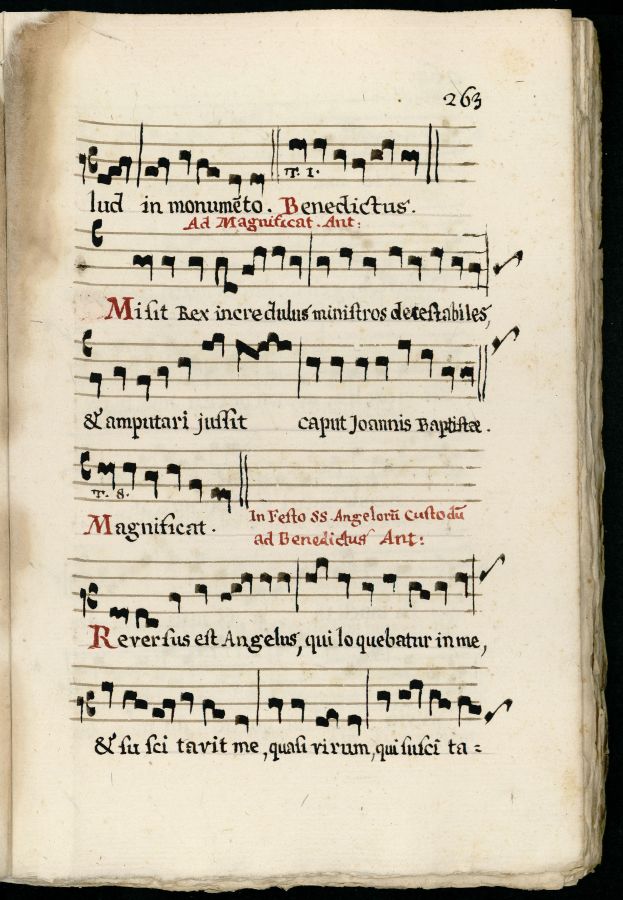 263
T. 1.
lud in monumēto. Benedictus.
Ad Magnificat. Ant:
Misit Rex incredulus ministros detestabiles,
& amputari jussit caput Joannis Baptistæ.
T. 8.
Magnificat.
In Festo SS. Angelorū Custodū
ad Benedictus Ant:
Reversus est Angelus, qui loquebatur in me,
& su sci tavit me, quasi virum, qui susci ta=